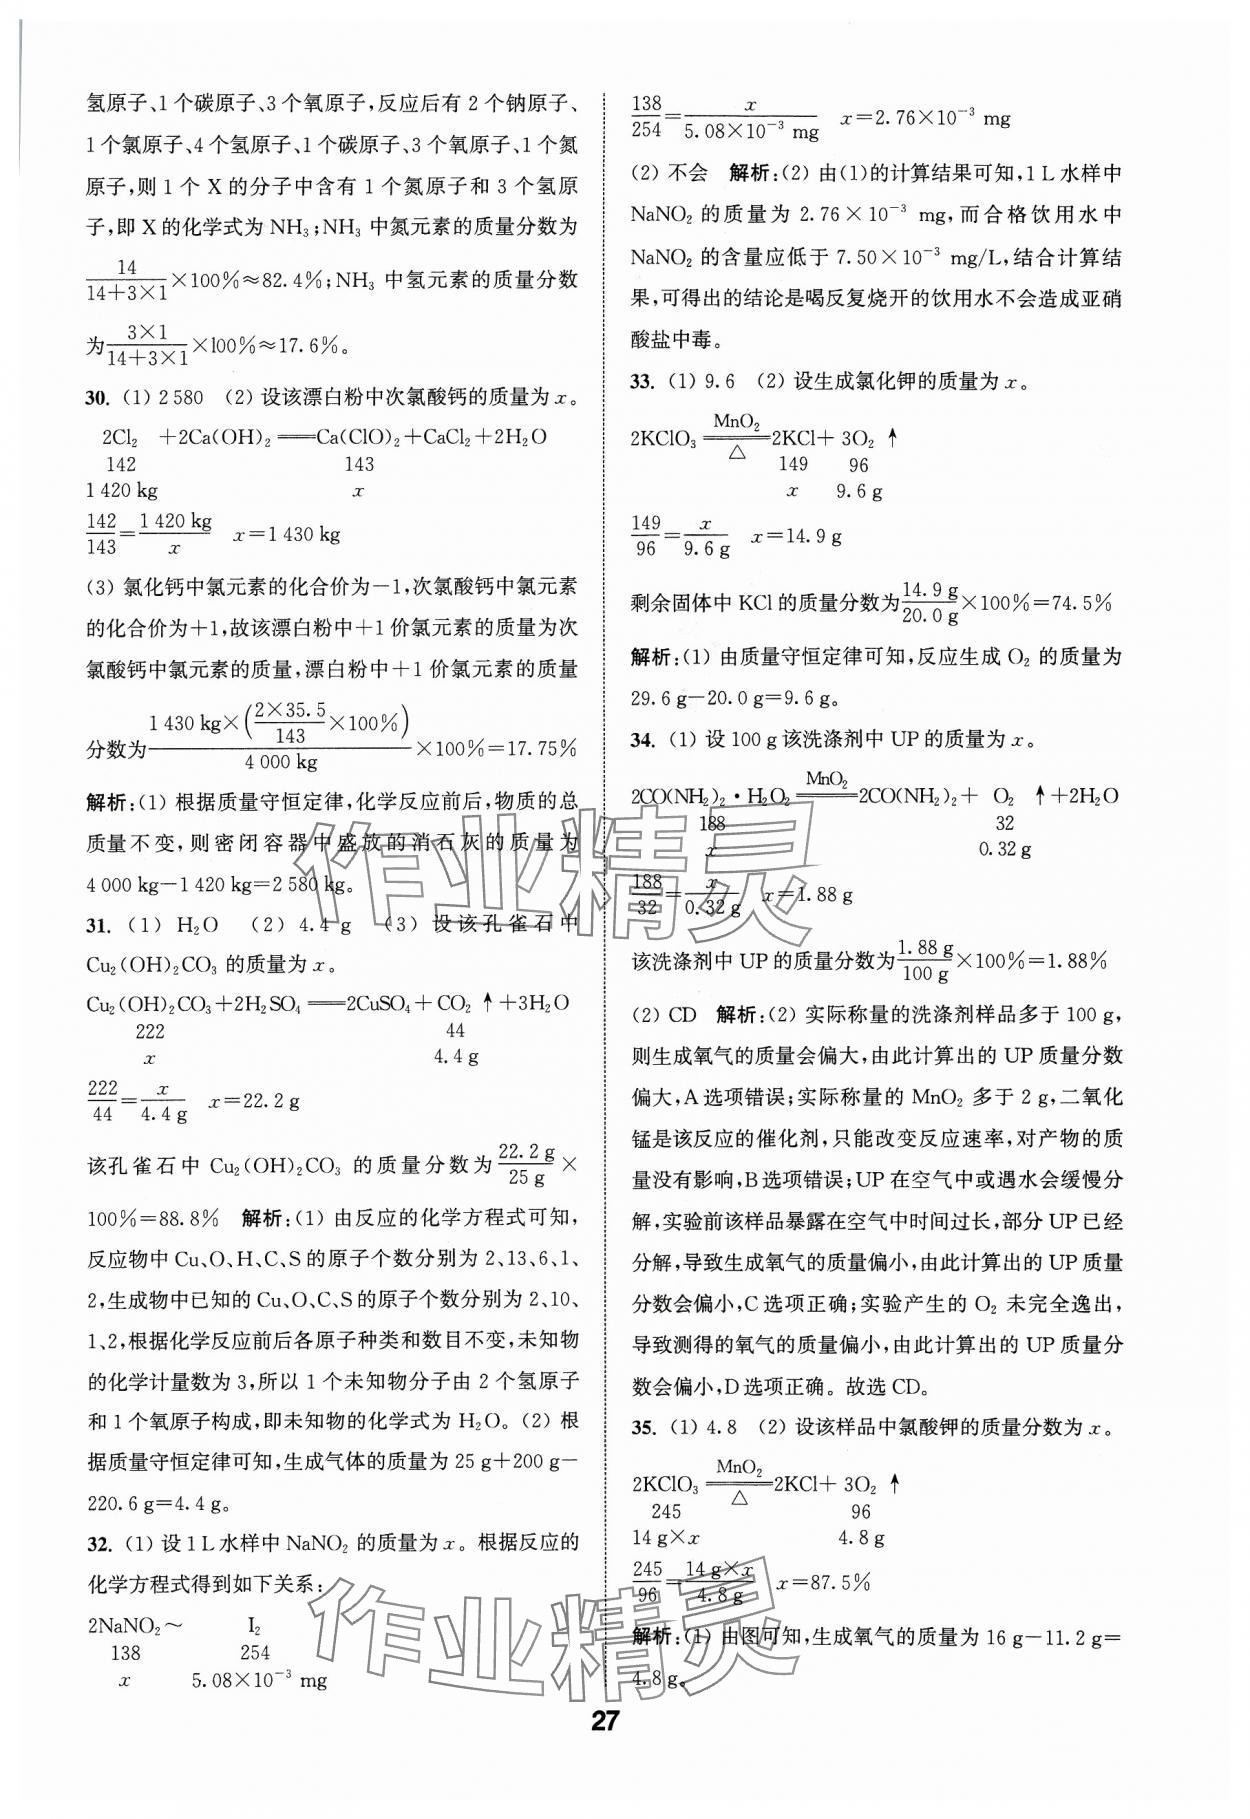 氢原子、1 个碳原子、3 个氧原子,反应后有 2 个钠原子、
1 个氯原子、4 个氢原子、1 个碳原子、3 个氧原子、1 个氮
原子,则 1 个 X 的分子中含有 1 个氮原子和 3 个氢原
子,即 X 的化学式为 NH₃;NH₃ 中氮元素的质量分数为
14/(14+3×1)×100%≈82.4%;NH₃ 中氢元素的质量分数
为(3×1)/(14+3×1)×100%≈17.6%。
30. (1) 2 580 (2) 设该漂白粉中次氯酸钙的质量为 x。
2Cl₂ +2Ca(OH)₂══Ca(ClO)₂+CaCl₂+2H₂O
142 143
1 420 kg x
142/143=1 420 kg/x x=1 430 kg
(3) 氯化钙中氯元素的化合价为-1,次氯酸钙中氯元素
的化合价为+1,故该漂白粉中+1 价氯元素的质量为次
氯酸钙中氯元素的质量,漂白粉中+1 价氯元素的质量
分数为[1 430 kg×(2×35.5/143×100%)]/4 000 kg×100%=17.75%
解析:(1) 根据质量守恒定律,化学反应前后,物质的总
质量不变,则密闭容器中盛放的消石灰的质量为
4 000 kg-1 420 kg=2 580 kg。
31. (1) H₂O (2) 4.4 g (3) 设该孔雀石中
Cu₂(OH)₂CO₃ 的质量为 x。
Cu₂(OH)₂CO₃+2H₂SO₄══2CuSO₄+CO₂↑+3H₂O
222 44
x 4.4 g
222/44=x/4.4 g x=22.2 g
该孔雀石中 Cu₂(OH)₂CO₃ 的质量分数为22.2 g/25 g×
100%=88.8% 解析:(1) 由反应的化学方程式可知,
反应物中 Cu、O、H、C、S 的原子个数分别为 2、13、6、1、
2,生成物中已知的 Cu、O、C、S 的原子个数分别为 2、10、
1、2,根据化学反应前后各原子种类和数目不变,未知物
的化学计量数为 3,所以 1 个未知物分子由 2 个氢原子
和 1 个氧原子构成,即未知物的化学式为 H₂O。(2) 根
据质量守恒定律可知,生成气体的质量为 25 g+200 g-
220.6 g=4.4 g。
32. (1) 设 1 L 水样中 NaNO₂ 的质量为 x。根据反应的
化学方程式得到如下关系:
2NaNO₂~ I₂
138 254
x 5.08×10⁻³ mg
138/254=x/(5.08×10⁻³ mg) x=2.76×10⁻³ mg
(2) 不会 解析:(2) 由(1)的计算结果可知,1 L 水样中
NaNO₂ 的质量为 2.76×10⁻³ mg,而合格饮用水中
NaNO₂ 的含量应低于 7.50×10⁻³ mg/L,结合计算结
果,可得出的结论是喝反复烧开的饮用水不会造成亚硝
酸盐中毒。
33. (1) 9.6 (2) 设生成氯化钾的质量为 x。
2KClO₃ ══(MnO₂/△) 2KCl+3O₂↑
149 96
x 9.6 g
149/96=x/9.6 g x=14.9 g
剩余固体中 KCl 的质量分数为14.9 g/20.0 g×100%=74.5%
解析:(1) 由质量守恒定律可知,反应生成 O₂ 的质量为
29.6 g-20.0 g=9.6 g。
34. (1) 设 100 g 该洗涤剂中 UP 的质量为 x。
2CO(NH₂)₂·H₂O₂ ══(MnO₂) 2CO(NH₂)₂+O₂↑+2H₂O
188 32
x 0.32 g
188/32=x/0.32 g x=1.88 g
该洗涤剂中 UP 的质量分数为1.88 g/100 g×100%=1.88%
(2) CD 解析:(2) 实际称量的洗涤剂样品多于 100 g,
则生成氧气的质量会偏大,由此计算出的 UP 质量分数
偏大,A 选项错误;实际称量的 MnO₂ 多于 2 g,二氧化
锰是该反应的催化剂,只能改变反应速率,对产物的质
量没有影响,B 选项错误;UP 在空气中或遇水会缓慢分
解,实验前该样品暴露在空气中时间过长,部分 UP 已经
分解,导致生成氧气的质量偏小,由此计算出的 UP 质量
分数会偏小,C 选项正确;实验产生的 O₂ 未完全逸出,
导致测得的氧气的质量偏小,由此计算出的 UP 质量分
数会偏小,D 选项正确。故选 CD。
35. (1) 4.8 (2) 设该样品中氯酸钾的质量分数为 x。
2KClO₃ ══(MnO₂/△) 2KCl+3O₂↑
245 96
14 g×x 4.8 g
245/96=14 g×x/4.8 g x=87.5%
解析:(1) 由图可知,生成氧气的质量为 16 g-11.2 g=
4.8 g。
作业精灵
作业精灵
27